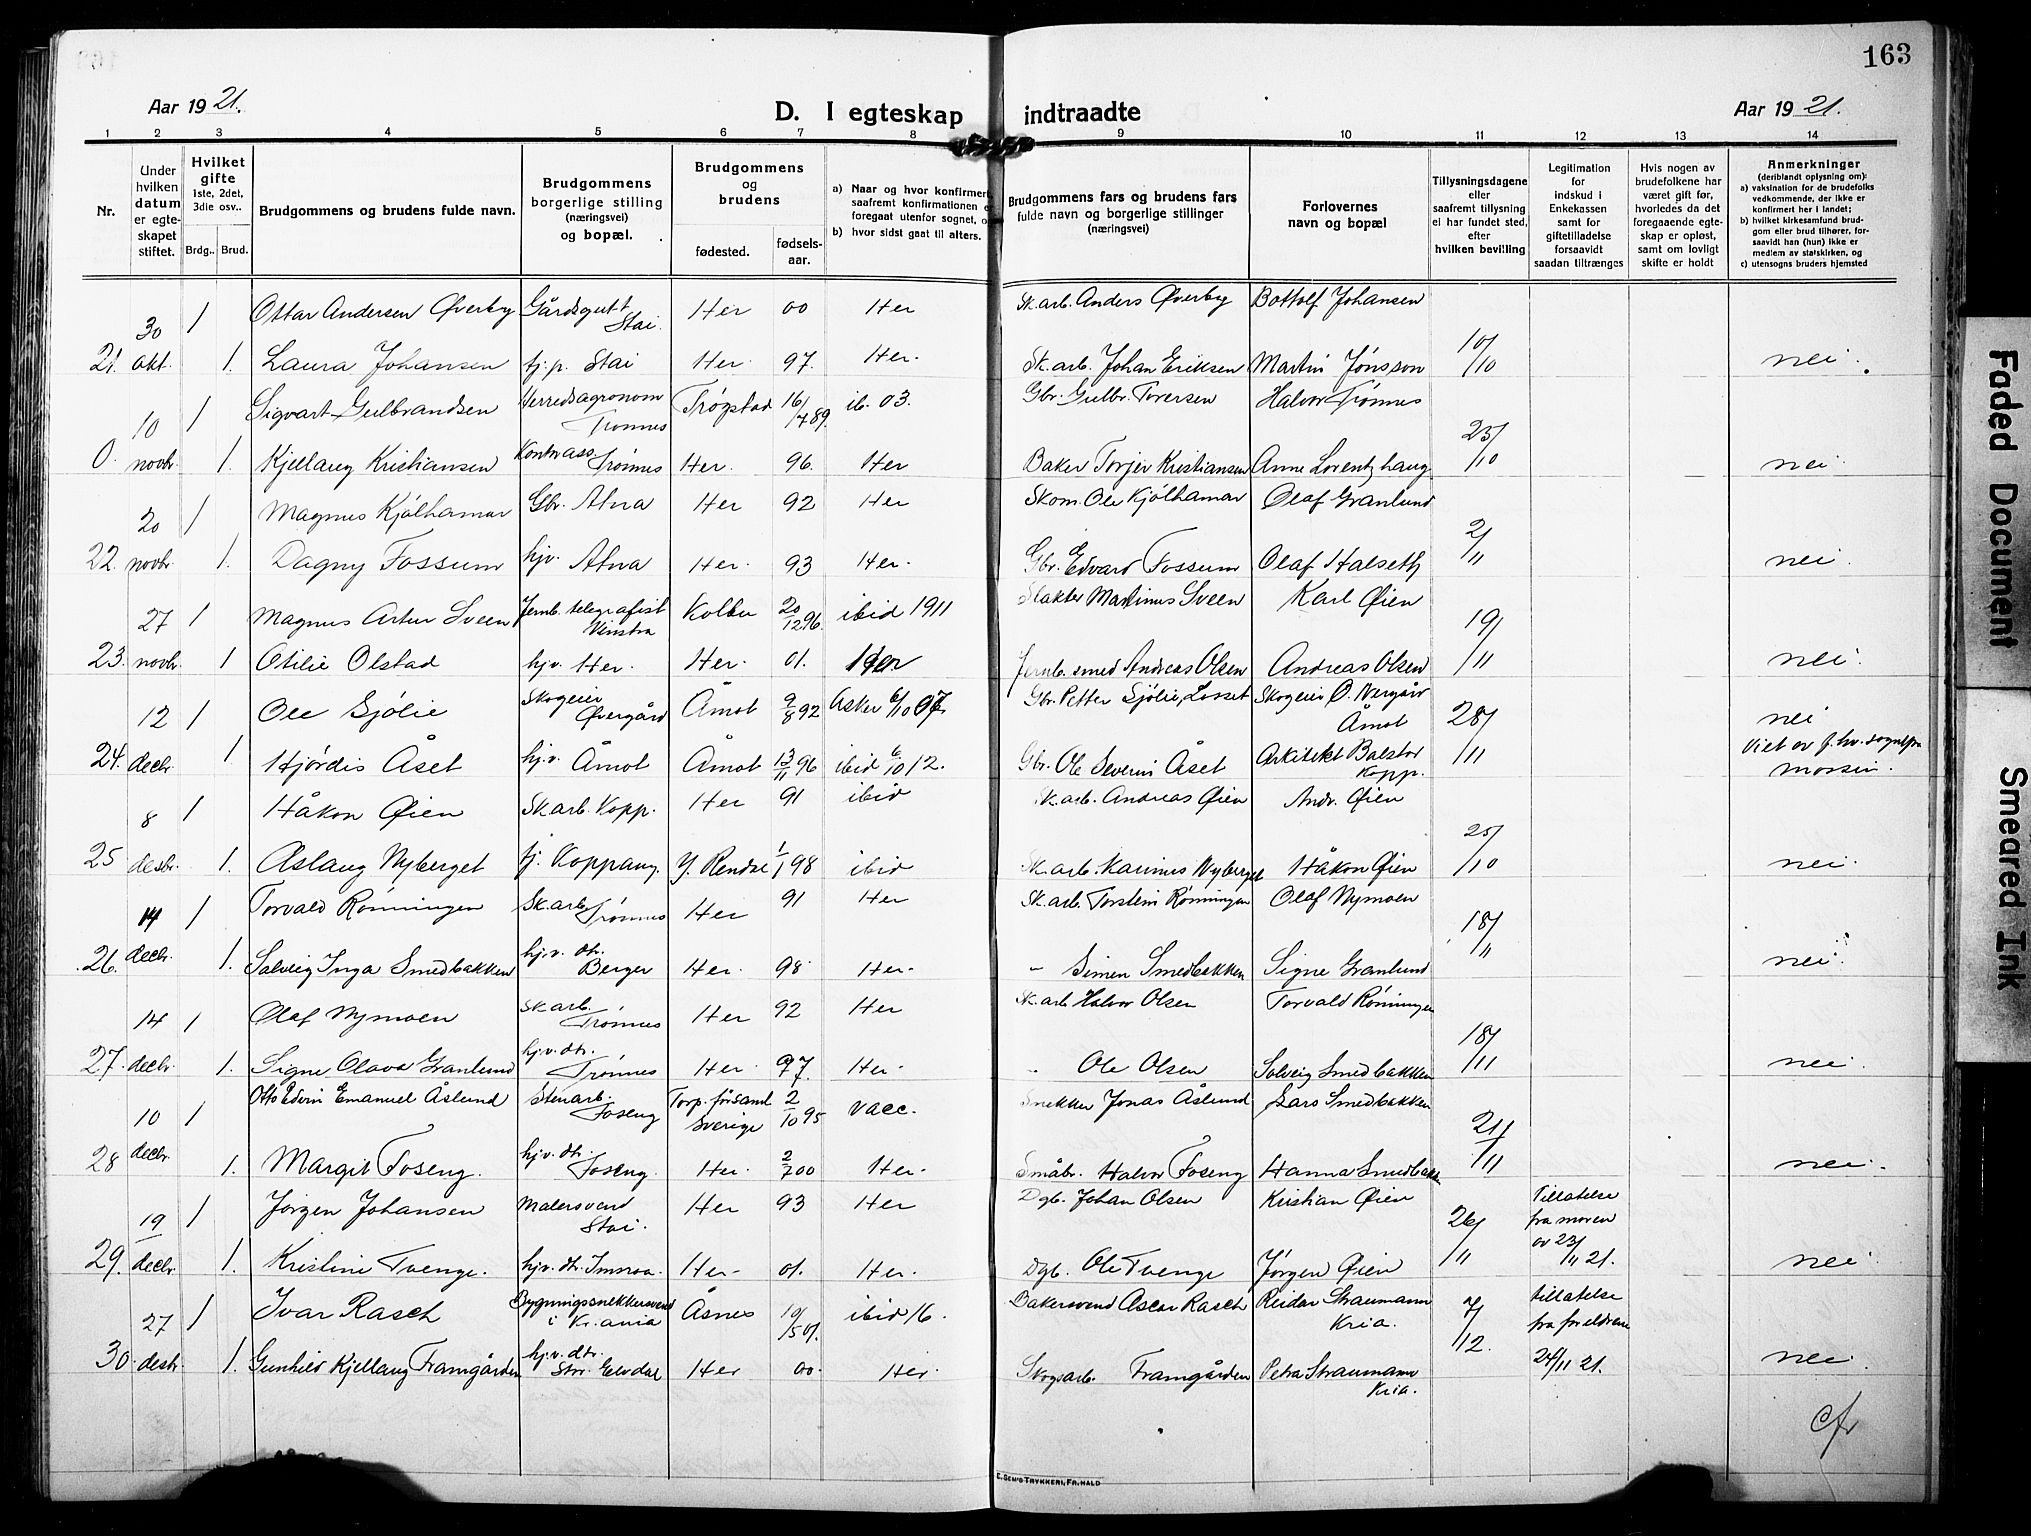 163
Aar 1921.
D. I egteskap indtraadte
Aar 1921.
1 2 3 4 5 6 7 8 9 10 11 12 13 14
Nr.
Under hvilken datum er egteskapet stiftet.
Hvilket gifte 1ste, 2det, 3die osv..
Brdg.. Brud.
Brudgommens og brudens fulde navn.
Brudgommens borgerlige stilling (næringsvei) og bopæl.
Brudgommens og brudens
fødested. fødselsaar.
a) Naar og hvor konfirmert, saafremt konfirmationen er foregaat utenfor sognet, og
b) hvor sidst gaat til alters.
Brudgommens fars og brudens fars fulde navn og borgerlige stillinger (næringsvei)
Forlovernes navn og bopæl
Tillysningsdagene eller saafremt tillysning ei har fundet sted, efter hvilken bevilling
Legitimation for indskud i Enkekassen samt for giftetilladelse forsaavidt saadan tiltrænges
Hvis nogen av brudefolkene har været gift før, hvorledes da det foregaaende egteskap er opløst, samt om lovligt skifte er holdt
Anmerkninger (deriblandt oplysning om):
a) vaksination for de brudefolks vedkommende, der ikke er konfirmert her i landet;
b) hvilket kirkesamfund brudgom eller brud tilhører, forsaavidt han (hun) ikke er medlem av statskirken, og
c) utensogns bruders hjemsted
30 1 Ottar Andersen Øverby Gårdsgutt Stai. Her 00 Her Sk.arb. Anders Øverby Bottolf Johansen
21. okt. 1. Laura Johansen tj.p. Stai Her 97. Her. Sk.arb. Johan Eriksen Martin Jønsson 10/10 nei.
10 1 Sigvart Gulbrandsen Herredsagronom Trønnes Trøgstad 16/7 89. ib. 03. Gbr. Gulbr. Toversen Halvor Trønnes
0. novbr. 1. Kjellaug Kristiansen Kontorass Trønnes Her. 96. Her Baker Torjer Kristiansen Anne Lorentzhaug 23/10 nei.
20 1 Magnus Kjølhamar Gbr. Atna Her 92 Her Skom. Ole Kjølhamar Olaf Granlund
22. novbr. 1. Dagny Fossum hjv. Atna Her. 93 Her. Gbr. Edvard Fossum Olaf Halseth 2/11 nei.
27 1 Magnus Artur Sveen Jernb. telegrafist Vinstra Kolbu 20/12 96. ibid 1911 Slakter Martinus Sveen Karl Øien
23. novbr. 1 Otilie Olstad hjv. Her. Her. 01. Her Jernb. smed Andreas Olsen Andreas Olsen 19/11 nei.
12 1 Ole Sjølie Skogeier Øvergård Åmot 9/8 92 Asker 6/10 07 Gbr. Petter Sjølie, Losset Skogeier O. Nergård Åmot nei
24. decbr. 1 Hjørdis Åset hj.v. Åmot Åmot 13/11 96 ibid 6/10 12. Gbr. Ole Severin Åset Arkitekt Balstad Kopp. 28/11 Viet av f.hv. sognepr. Mossin.
8 1 Håkon Øien Sk.arb. Kopp. Her 91 ibid Sk.arb. Andreas Øien Andr. Øien
25 desbr. 1. Aslaug Nyberget tj. Koppang. Y. Rendal 1/1 98 ibid Sk.arb. Karinus Nyberget Håkon Øien 25/10 nei.
14 1 Torvald Rønningen Sk.arb. Trønnes Her 91 Her Sk.arb. Torstein Rønningen Olaf Nymoen
26. decbr. 1. Solveig Inga Smedbakken hj.v. dtr. Berger Her. 98. Her. " Simen Smedbakken Signe Granlund 18/11 nei.
14 1 Olaf Nymoen Sk.arb. Trønnes Her 92 Her Sk.arb Halvor Olsen Torvald Rønningen
27. decbr. 1. Signe Olava Granlund hj.v. dtr. Trønnes Her. 97. Her. " Ole Olsen Solveig Smedbakken 18/11 nei.
10 1 Otto Edvin Emanuel Åslund Stenarb. Foseng Torp. församl Sverige 2/10 95 vacc. Snekker Jonas Åslund Lars Smedbakken
28 decbr. 1. Margit Foseng. hj.v. dtr. Foseng. Her. 2/7 00 Her. Småbr. Halvor Foseng Hanna Smedbakk 21/11 nei.
19 1 Jørgen Johansen Malersvend Stai. Her 93 Her Dgb. Johan Olsen Kristian Øien Tillatelse fra moren
29. decbr. 1. Kristine Tvenge. hj.v. dtr. Imsroa. Her. 01. Her. Dgb. Ole Tvenge Jørgen Øien 26/11 av 23/11 21. nei.
27 1 Ivar Rasch Bygningssnekkersvend i Kr.ania Åsnes 10/5 01. ibid 16. Bakersvend Oscar Rasch Reidar Straumann Kria. 7/12. tillatelse fra foreldrene
30. desbr. 1. Gunhild Kjellaug Framgården hj.v. dtr. Stor Elvdal Her 00. Her. Skogsarb. Framgården Petra Straumann Kria. 24/11 21. nei.
Cfr
E. SEM'S TRYKKERI, FR.HALD
Faded Document
Smeared Ink